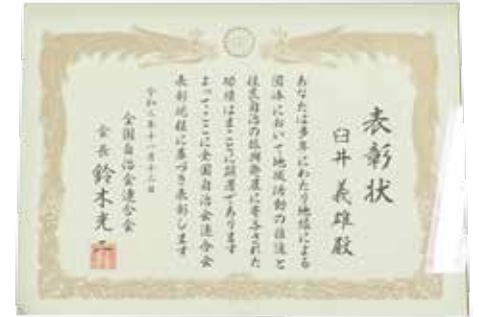 表彰状
臼井 義雄 殿
あなたは多年にわたり地縁による
団体において地域活動の推進と
住民自治の振興発展に寄与された
功績はまことに顕著であります
よってここに全国自治会連合会
表彰規程に基づき表彰します
令和三年十一月十六日
全国自治会連合会
会長 鈴木光